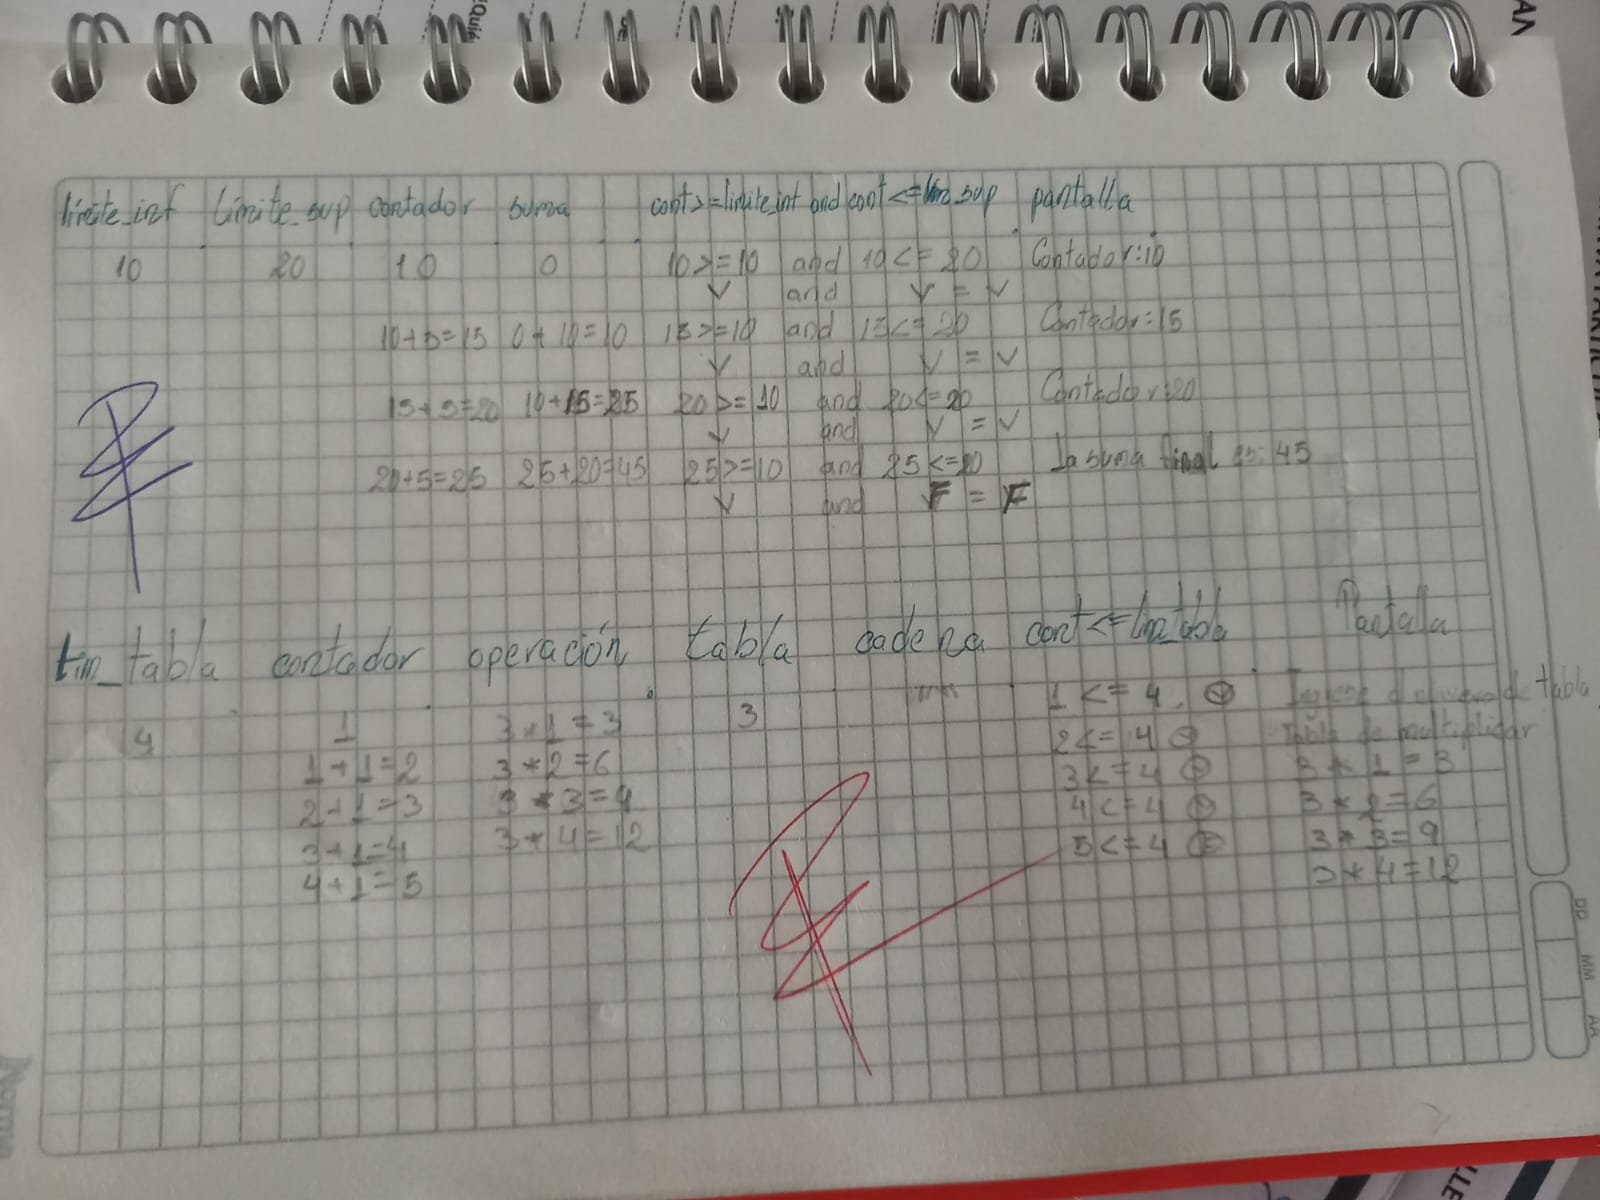 limite_inf limite_sup contador suma cont>=limite_inf and cont<=lim_sup pantalla
10 20 10 0 10>=10 and 10<=20 Contador:10
V and V = V
10+5=15 0+10=10 15>=10 and 15<=20 Contador:15
V and V = V
15+5=20 10+15=25 20>=10 and 20<=20 Contador:20
V and V = V
20+5=25 25+20=45 25>=10 and 25<=20 la suma final es: 45
V and F = F
lim_tabla contador operación tabla cadena cont<=lim_tabla Pantalla
4 1 3*1=3 3 1<=4 V tabla
1+1=2 3*2=6 2<=4 Tabla de multiplicar
2+1=3 3*3=9 3<=4 3*1=3
3+1=4 3*4=12 4<=4 3*2=6
4+1=5 5<=4 3*3=9
3*4=12
DD
MM
AA
Norma